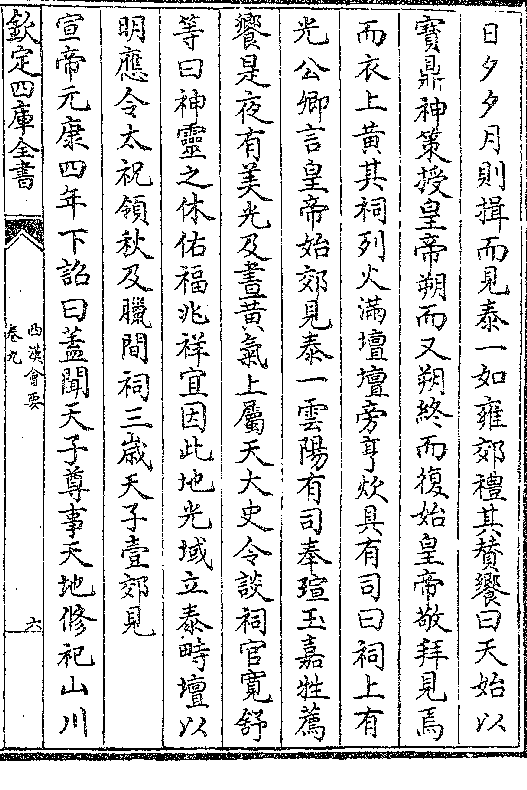 日夕夕月則揖而見泰一如雍郊禮其贊饗曰天始以
寶鼎神策授皇帝朔而又朔終而復始皇帝敬拜見焉
而衣上黄其祠列火滿壇壇旁亨炊具有司曰祠上有
光公卿言皇帝始郊見泰一雲陽有司奉瑄玉嘉牲薦
饗是夜有美光及晝黄氣上屬天大史令談祠官寛舒
等曰神靈之休佑福兆祥宜因此地光域立泰畤壇以
明應令太祝領秋及臘間祠三歳天子壹郊見
宣帝元康四年下詔曰蓋聞天子尊事天地修祀山川
欽定四庫全書
西漢會要
卷九
六